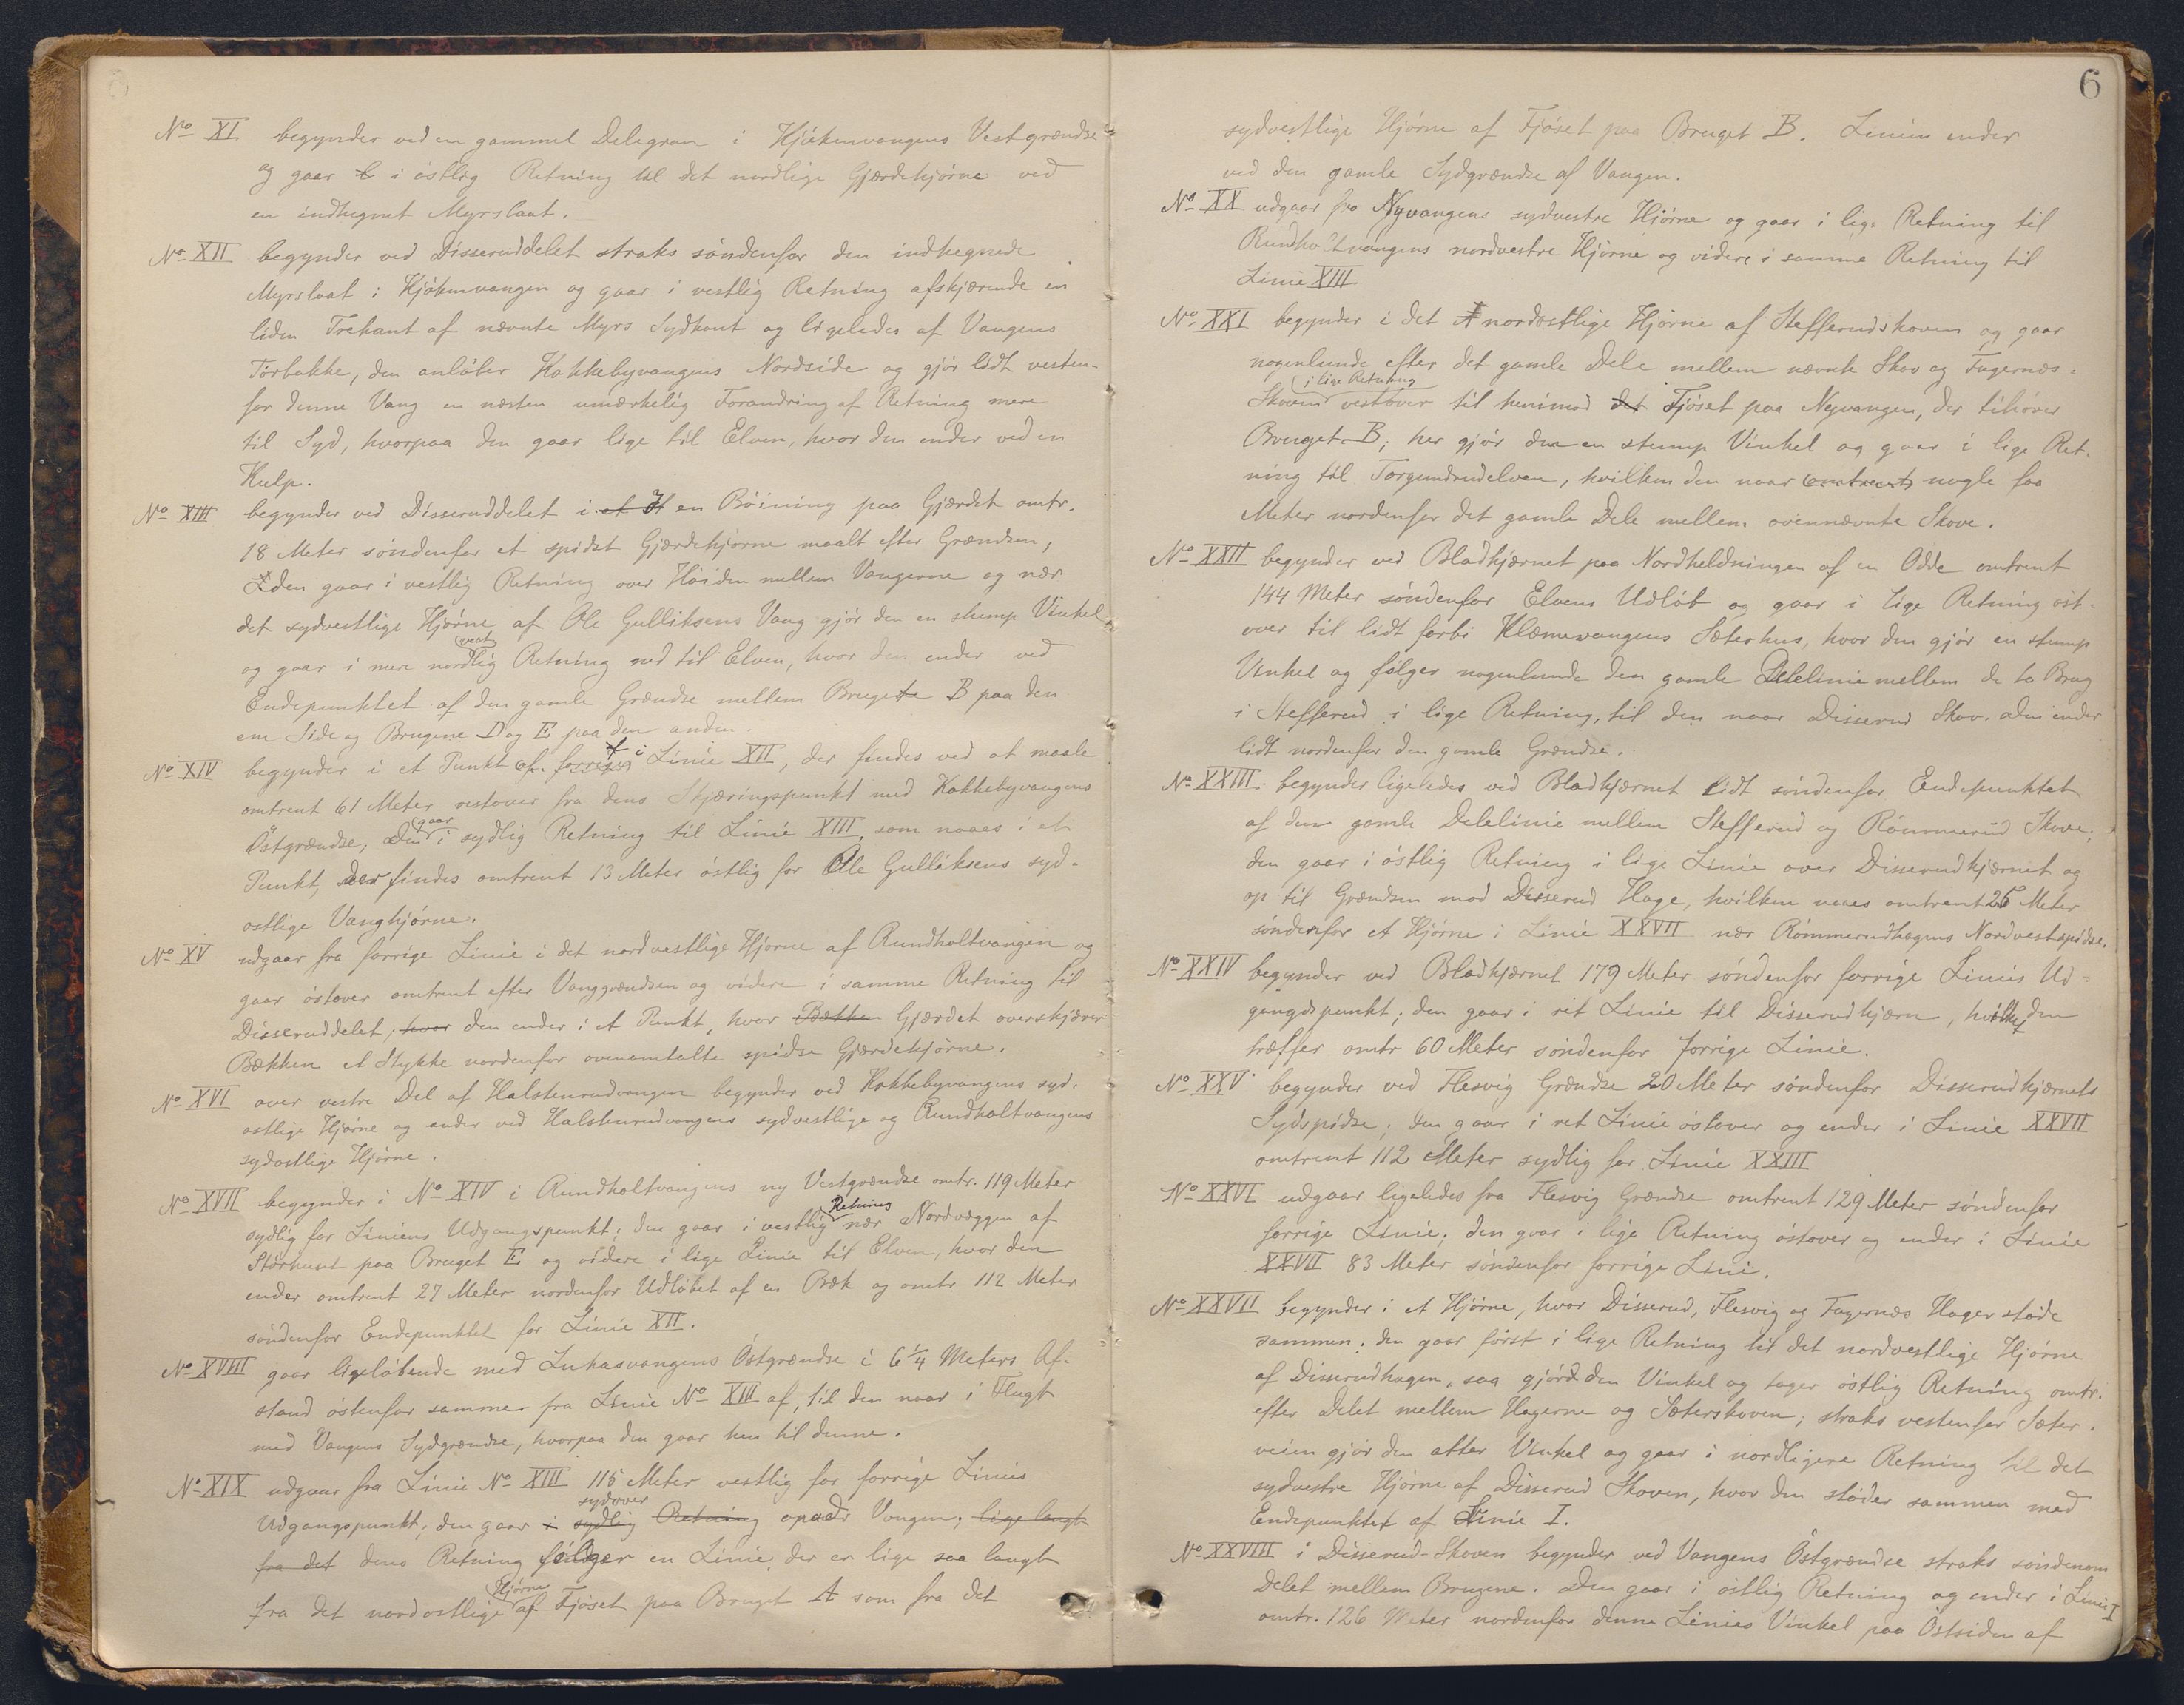 No XI begynder ved en gammel Delegran i Kjökenvangens Vestgrændse
og gaar i östlig Retning til det nordlige Gjærdehjörne ved
en indhegnet Myrslaat.
No XII begynder ved Disseruddelet straks söndenfor den indhegnede
Myrslaat i Kjökenvangen og gaar i vestlig Retning afskjærende en
liden Trekant af nævnte Myrs Sydkant og ligeledes af Vangens
Törbakke, den anlöber Kakkebyvangens Nordside og gjör lidt vesten-
for denne Vang en næsten umærkelig Forandring af Retning mere
til Syd, hvorpaa den gaar lige til Elven, hvor den ender ved en
Kulp.
No XIII begynder ved Disseruddelet i et H en Böining paa Gjærdet omtr.
18 Meter söndenfor et spidst Gjærdehjörne maalt efter Grændsen;
den gaar i vestlig Retning over Höiden mellem Vangerne og nær
det sydvestlige Hjörne af Ole Gulliksens Vang gjör den en stump Vinkel
og gaar i mere nordvestlig Retning ned til Elven, hvor den ender ved
Endepunktet af den gamle Grændse mellem Brugete B paa den
ene Side og Brugene D og E paa den anden.
No XIV begynder i et Punkt af forrige i Linie XII, der findes ved at maale
omtrent 61 Meter vestover fra dens Skjæringspunkt med Kakkebyvangens
Östgrændse; den gaar i sydlig Retning til Linie XIII, som naaes i et
Punkt, der findes omtrent 13 Meter östlig for Ole Gulliksens syd-
ostlige Vanghjörne.
No XV udgaar fra forrige Linie i det nordvestlige Hjörne af Rundholtvangen og
gaar östover omtrent efter Vanggrændsen og videre i samme Retning til
Disseruddelet; hvor den ender i et Punkt, hvor Bækken Gjærdet overskjærer
Bækken et Stykke nordenfor ovenomtalte spidse Gjærdehjörne.
No XVI over vestre Del af Halstenrudvangen begynder ved Kakkebyvangens syd-
ostlige Hjörne og ender ved Halstenrudvangens sydvestlige og Rundholtvangens
sydostlige Hjörne.
No XVII begynder i No XIV i Rundholtvangens ny Vestgrændse omtr. 119 Meter
sydlig for Liniens Udgangspunkt; den gaar i vestlig Retning nær Nordvæggen af
Störhuset paa Bruget E og videre i lige Linie til Elven, hvor den
ender omtrent 27 Meter nordenfor Udlöbet af en Bæk og omtr 112 Meter
söndenfor Endepunktet for Linie XII.
No XVIII gaar ligelöbende med Lukasvangens Östgrændse i 6 1/4 Meters Af-
stand östenfor samme fra Linie No XIII af, til den naar i Flugt
med Vangens Sydgrændse, hvorpaa den gaar hen til denne.
No XIX udgaar fra Linie No XIII 115 Meter vestlig for forrige Linies
Udgangspunkt; den gaar i sydlig sydover Retning opad Vangen; lige langt
fra det dens Retning fölger en Linie, der er lige saa langt
fra det nordostlige Hjörne af Fjöset paa Bruget A som fra det
6
sydvestlige Hjörne af Fjöset paa Bruget B. Linien ender
ved den gamle Sydgrændse af Vangen.
No XX udgaar fra Nyvangens sydvestre Hjörne og gaar i lige Retning til
Rundholtvangens nordvestre Hjörne og videre i samme Retning til
Linie XIII
No XXI begynder i det nordostlige Hjörne af Stefferudskoven og gaar
nogenlunde efter det gamle Dele mellem nævnte Skov og Fagernæs-
Skoven i lige Retning vestover til henimod det Fjöset paa Nyvangen, der tilhörer
Bruget B; her gjör den en stump Vinkel og gaar i lige Ret-
ning til Torgundrudelven, hvilken den naar omtrent nogle faa
Meter nordenfor det gamle Dele mellem ovennævnte Skove.
No XXII begynder ved Bladkjærnet paa Nordheldningen af en Odde omtrent
144 Meter söndenfor Elvens Udlöb og gaar i lige Retning öst-
over til lidt forbi Klæmevangens Sæterhus, hvor den gjör en stump
Vinkel og fölger nogenlunde den gamle Delelinie mellem de to Brug
i Stefferud i lige Retning, til den naar Disserud Skov. den ender
lidt nordenfor den gamle Grændse.
No XXIII begynder ligeledes ved Bladkjærnet lidt söndenfor Endepunktet
af den gamle Delelinie mellem Stefferud og Römmerud Skove;
den gaar i östlig Retning i lige Linie over Disserudkjærnet og
op til Grændsen mod Disserud Hage, hvilken naaes omtrent 25 Meter
söndenfor et Hjörne i Linie XXVII nær Römmerudhagens Nordvestspidse.
No XXIV begynder ved Bladkjærnet 179 Meter söndenfor forrige Linies Ud-
gangspunkt; den gaar i ret Linie til Disserudkjærn, hvilket den
træffer omtr 60 Meter söndenfor forrige Linie.
No XXV begynder ved Flesvig Grændse 20 Meter söndenfor Disserudkjærnets
Sydspidse; den gaar i ret Linie östover og ender i Linie XXVII
omtrent 112 Meter sydlig for Linie XXIII
No XXVI udgaar ligeledes fra Flesvig Grændse omtrent 129 Meter söndenfor
forrige Linie; den gaar i lige Retning östover og ender i Linie
XXVII 83 Meter söndenfor forrige Linie.
No XXVII begynder i et Hjörne, hvor Disserud, Flesvig og Fagernæs Hager stöde
sammen; den gaar först i lige Retning til det nordvestlige Hjörne
af Disserudhagen, saa gjör den Vinkel og tager östlig Retning omtr.
efter Delet mellem Hagerne og Sæterskoven; straks vestenfor Sæter-
veien gjör den atter Vinkel og gaar i nordligere Retning til det
sydvestre Hjörne af Disserud Skoven, hvor den stöder sammen med
Endepunktet af Linie I.
No XXVIII i Disserud-Skoven begynder ved Vangens Östgrændse straks söndenom
Delet mellem Brugene. Den gaar i östlig Retning og ender i Linie I
omtr. 126 Meter nordenfor denne Linies Vinkel paa Östsiden af